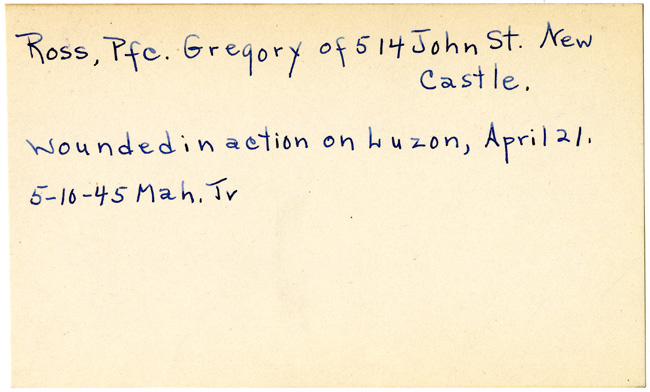 Ross, Pfc. Gregory of 514 John St. New
Castle.
Wounded in action on Luzon, April 21.
5-10-45 Mah. Tr